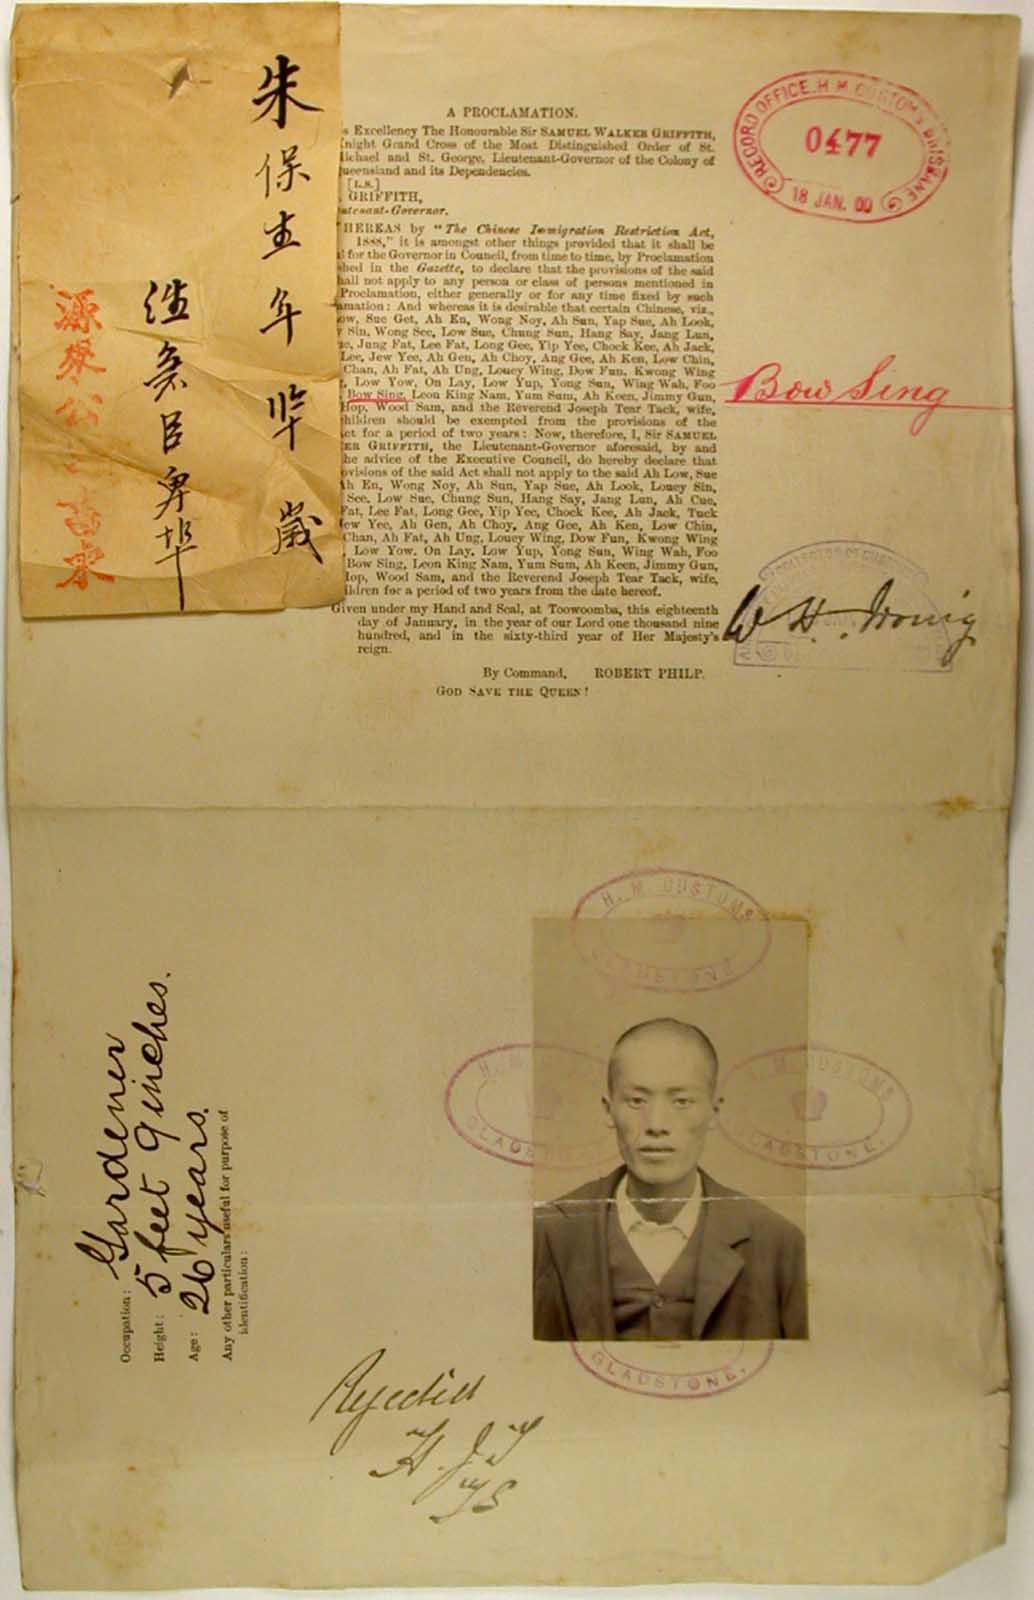 朱保生年 歲
臣
源 公
A PROCLAMATION.
Excellency The Honourable Sir SAMUEL WALKER GRIFFITH,
Knight Grand Cross of the Most Distinguished Order of St.
Michael and St. George, Lieutenant-Governor of the Colony of
Queensland and its Dependencies.
[L.S.]
GRIFFITH,
Lieutenant-Governor.
WHEREAS by "The Chinese Immigration Restriction Act,
1888," it is amongst other things provided that it shall be
for the Governor in Council, from time to time, by Proclamation
in the Gazette, to declare that the provisions of the said
shall not apply to any person or class of persons mentioned in
Proclamation, either generally or for any time fixed by such
Proclamation: And whereas it is desirable that certain Chinese, viz.,
Low, Sue Get, Ah En, Wong Noy, Ah Sun, Yap Sue, Ah Look,
Sin, Wong See, Low Sue, Chung Sun, Hang Say, Jang Lun,
Jung Fat, Lee Fat, Long Gee, Yip Yee, Chock Kee, Ah Jack,
Lee, Jew Yee, Ah Gen, Ah Choy, Ang Gee, Ah Ken, Low Chin,
Chan, Ah Fat, Ah Ung, Louey Wing, Dow Fun, Kwong Wing
Low Yow, On Lay, Low Yup, Yong Sun, Wing Wah, Foo
Bow Sing, Leon King Nam, Yum Sum, Ah Keen, Jimmy Gun,
Hop, Wood Sam, and the Reverend Joseph Tear Tack, wife,
children should be exempted from the provisions of the
Act for a period of two years: Now, therefore, I, Sir SAMUEL
WALKER GRIFFITH, the Lieutenant-Governor aforesaid, by and
the advice of the Executive Council, do hereby declare that
provisions of the said Act shall not apply to the said Ah Low, Sue
Ah En, Wong Noy, Ah Sun, Yap Sue, Ah Look, Louey Sin,
See, Low Sue, Chung Sun, Hang Say, Jang Lun, Ah Cue,
Fat, Lee Fat, Long Gee, Yip Yee, Chock Kee, Ah Jack, Tuck
Jew Yee, Ah Gen, Ah Choy, Ang Gee, Ah Ken, Low Chin,
Chan, Ah Fat, Ah Ung, Louey Wing, Dow Fun, Kwong Wing
Low Yow, On Lay, Low Yup, Yong Sun, Wing Wah, Foo
Bow Sing, Leon King Nam, Yum Sum, Ah Keen, Jimmy Gun,
Hop, Wood Sam, and the Reverend Joseph Tear Tack, wife,
children for a period of two years from the date hereof.
Given under my Hand and Seal, at Toowoomba, this eighteenth
day of January, in the year of our Lord one thousand nine
hundred, and in the sixty-third year of Her Majesty's
reign.
By Command, ROBERT PHILP.
GOD SAVE THE QUEEN!
RECORD OFFICE. H. M. CUSTOMS BRISBANE
0477
18 JAN. 00
Bow Sing
COLLECTOR OF
W. H. Irving
H. M. CUSTOMS
GLADSTONE
H. M.
GLADSTONE
H. M. CUSTOMS
GLADSTONE.
GLADSTONE.
Occupation: Gardener
Height: 5 feet 9 inches.
Age: 26 years.
Any other particulars useful for purpose of
identification:
Rejected